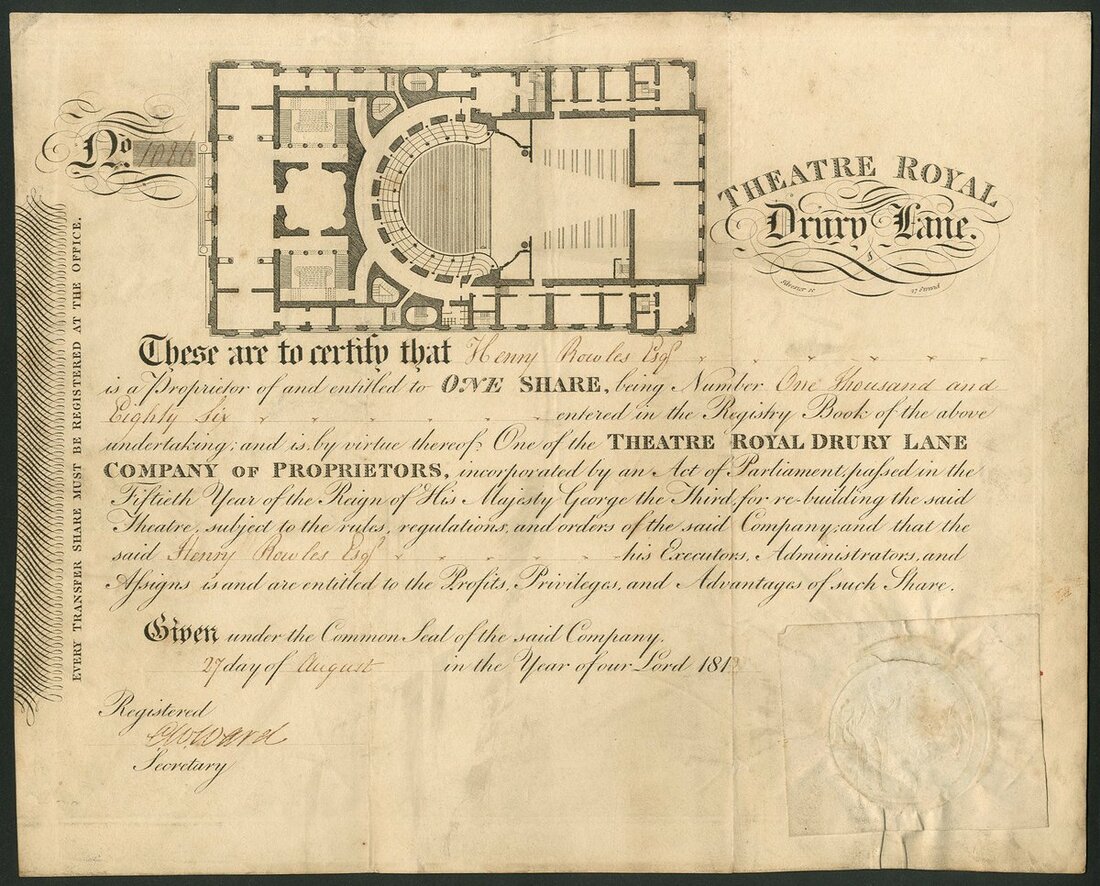 No 1086
THEATRE ROYAL
Drury Lane.
27 Strand
EVERY TRANSFER SHARE MUST BE REGISTERED AT THE OFFICE.
These are to certify that Henry Rowles Esqr
is a Proprietor of and entitled to ONE SHARE, being Number One Thousand and
Eighty Six entered in the Registry Book of the above
undertaking; and is by virtue thereof One of the THEATRE ROYAL DRURY LANE
COMPANY OF PROPRIETORS, incorporated by an Act of Parliament, passed in the
Fiftieth Year of the Reign of His Majesty George the Third, for re-building the said
Theatre, subject to the rules, regulations, and orders of the said Company; and that the
said Henry Rowles Esqr his Executors, Administrators, and
Assigns is and are entitled to the Profits, Privileges, and Advantages of such Share.
Given under the Common Seal of the said Company,
27 day of August in the Year of our Lord 181
Registered
Ward
Secretary